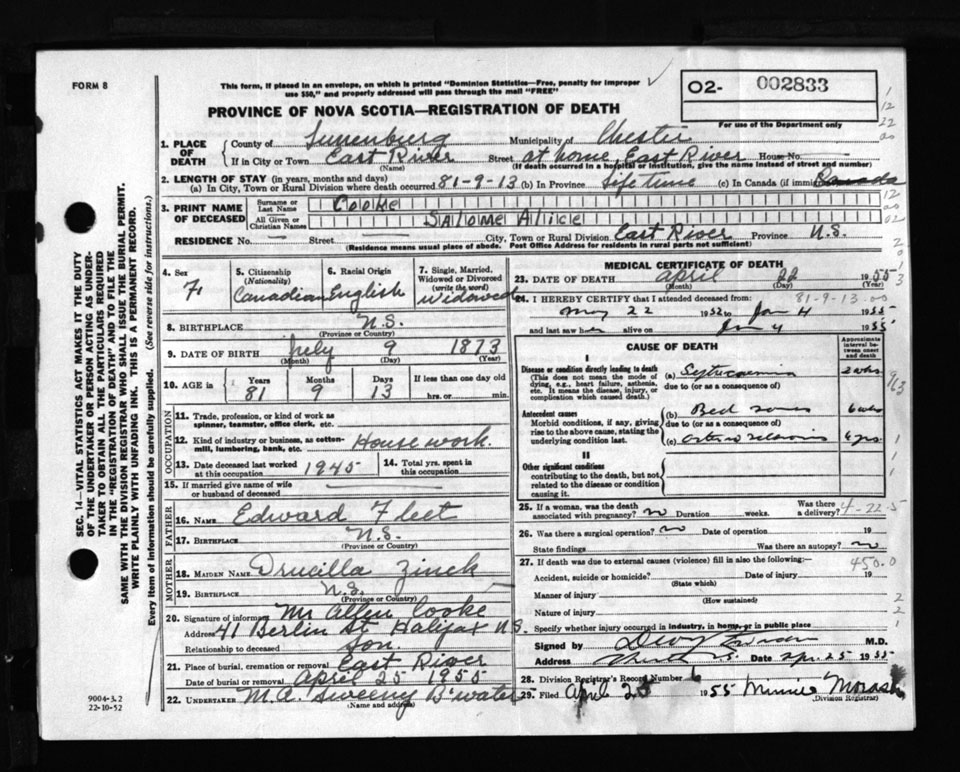 FORM 8
This form, if placed in an envelope, on which is printed "Dominion Statistics—Free, penalty for improper
use $50," and properly addressed will pass through the mail "FREE"
PROVINCE OF NOVA SCOTIA—REGISTRATION OF DEATH
O2- 002833
For use of the Department only
1. PLACE OF DEATH
County of Lunenburg Municipality of Chester
If in City or Town East River Street at home, East River House No.
(Name) (If death occurred in a hospital or institution, give the name instead of street and number)
2. LENGTH OF STAY (in years, months and days)
(a) In City, Town or Rural Division where death occurred 81-9-13 (b) In Province Life time (c) In Canada (if immig Canada
3. PRINT NAME OF DECEASED
Surname or Last Name Cooke
All Given or Christian Names Salome Alice
RESIDENCE No. — Street — City, Town or Rural Division East River Province N.S.
(Residence means usual place of abode. Post Office Address for residents in rural parts not sufficient)
4. Sex F
5. Citizenship (Nationality) Canadian
6. Racial Origin English
7. Single, Married, Widowed or Divorced (write the word) Widowed
8. BIRTHPLACE N.S.
(Province or Country)
9. DATE OF BIRTH July 9 1873
(Month) (Day) (Year)
10. AGE in Years 81 Months 9 Days 13 If less than one day old
hrs. or min.
OCCUPATION
11. Trade, profession, or kind of work as
spinner, teamster, office clerk, etc.
12. Kind of industry or business, as cotton-
mill, lumbering, bank, etc. House work.
13. Date deceased last worked at this occupation 1945
14. Total yrs. spent in this occupation
15. If married give name of wife
or husband of deceased
FATHER
16. NAME Edward Fleet
17. BIRTHPLACE N.S.
(Province or Country)
MOTHER
18. MAIDEN NAME Drucilla Zinck
19. BIRTHPLACE N.S.
(Province or Country)
20. Signature of informant Mr Allen Cooke
Address 41 Berlin St Halifax N.S.
Relationship to deceased Son.
21. Place of burial, cremation or removal East River
Date of burial or removal April 25 1955
22. UNDERTAKER M.A. Sweeny B'water
(Name and address)
MEDICAL CERTIFICATE OF DEATH
23. DATE OF DEATH April 22 1955
(Month) (Day) (Year)
24. I HEREBY CERTIFY that I attended deceased from: 81-9-13
May 22 1952 to Jan 4 1955
and last saw her alive on Jan 4 1955
CAUSE OF DEATH
Approximate interval between onset and death
I
Disease or condition directly leading to death (a) 2 wks
(This does not mean the mode of dying, e.g., heart failure, asthenia, etc. It means the disease, injury, or complication which caused death.)
due to (or as a consequence of)
Antecedent causes (b) Bed sores 6 wks
Morbid conditions, if any, giving rise to the above cause, stating the underlying condition last.
due to (or as a consequence of)
(c) 6 yrs.
II
Other significant conditions
contributing to the death, but not
related to the disease or condition
causing it.
25. If a woman, was the death associated with pregnancy? no Duration weeks. Was there a delivery?
26. Was there a surgical operation? no Date of operation 19
State findings Was there an autopsy? no
27. If death was due to external causes (violence) fill in also the following:—
Accident, suicide or homicide? Date of injury 19
(State which)
Manner of injury
(How sustained)
Nature of injury
Specify whether injury occurred in industry, in home, or in public place
Signed by M.D.
Address Date Apr. 25 1955
28. Division Registrar's Record Number 6
29. Filed April 25 1955 Minnie Morash
(Division Registrar)
SEC. 14—VITAL STATISTICS ACT MAKES IT THE DUTY
OF THE UNDERTAKER OR PERSON ACTING AS UNDER-
TAKER TO OBTAIN ALL THE PARTICULARS REQUIRED
IN THE "REGISTRATION OF DEATH" AND TO FILE THE
SAME WITH THE DIVISION REGISTRAR WHO SHALL ISSUE THE BURIAL PERMIT.
WRITE PLAINLY WITH UNFADING INK. THIS IS A PERMANENT RECORD.
Every item of information should be carefully supplied. (See reverse side for instructions.)
4-22-5
450.0
9004-3.2
22-10-52